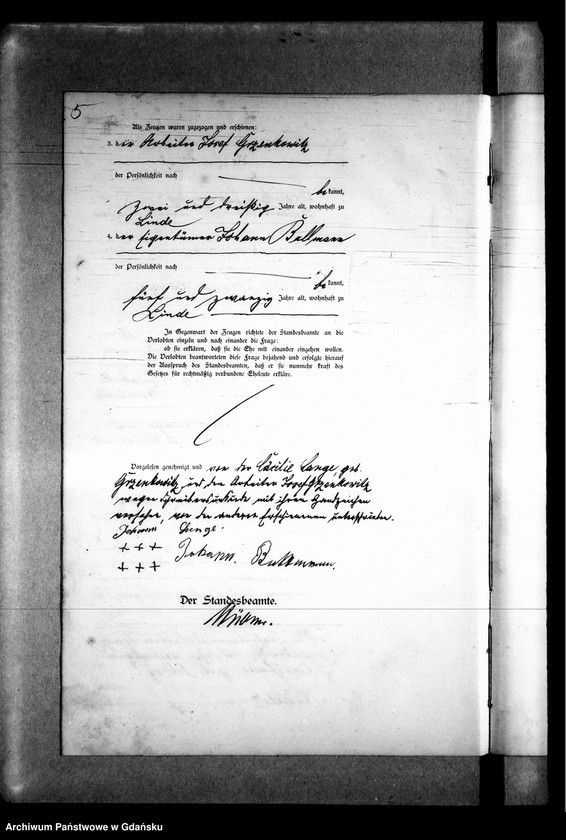 5
Als Zeugen waren zugezogen und erschienen:
3. der Arbeiter Josef Grzenkowitz
der Persönlichkeit nach
bekannt,
zwei und dreißig Jahre alt, wohnhaft zu
Linde
4. der Eigentümer Johann Bullmann
der Persönlichkeit nach
bekannt,
fünf und zwanzig Jahre alt, wohnhaft zu
Linde
In Gegenwart der Zeugen richtete der Standesbeamte an die
Verlobten einzeln und nach einander die Frage:
ob sie erklären, daß sie die Ehe mit einander eingehen wollen.
Die Verlobten beantworteten diese Frage bejahend und erfolgte hierauf
der Ausspruch des Standesbeamten, daß er sie nunmehr kraft des
Gesetzes für rechtmäßig verbundene Eheleute erkläre.
Vorgelesen genehmigt und von der Cäcilie Lange, geb.
Grzenkowitz und dem Arbeiter Josef Grzenkowitz
wegen Schreibensunkunde mit ihren Handzeichen
versehen, von den anderen Erschienenen unterschrieben.
Johann Lange
+ + +
+ + + Johann Bullmann.
Der Standesbeamte.